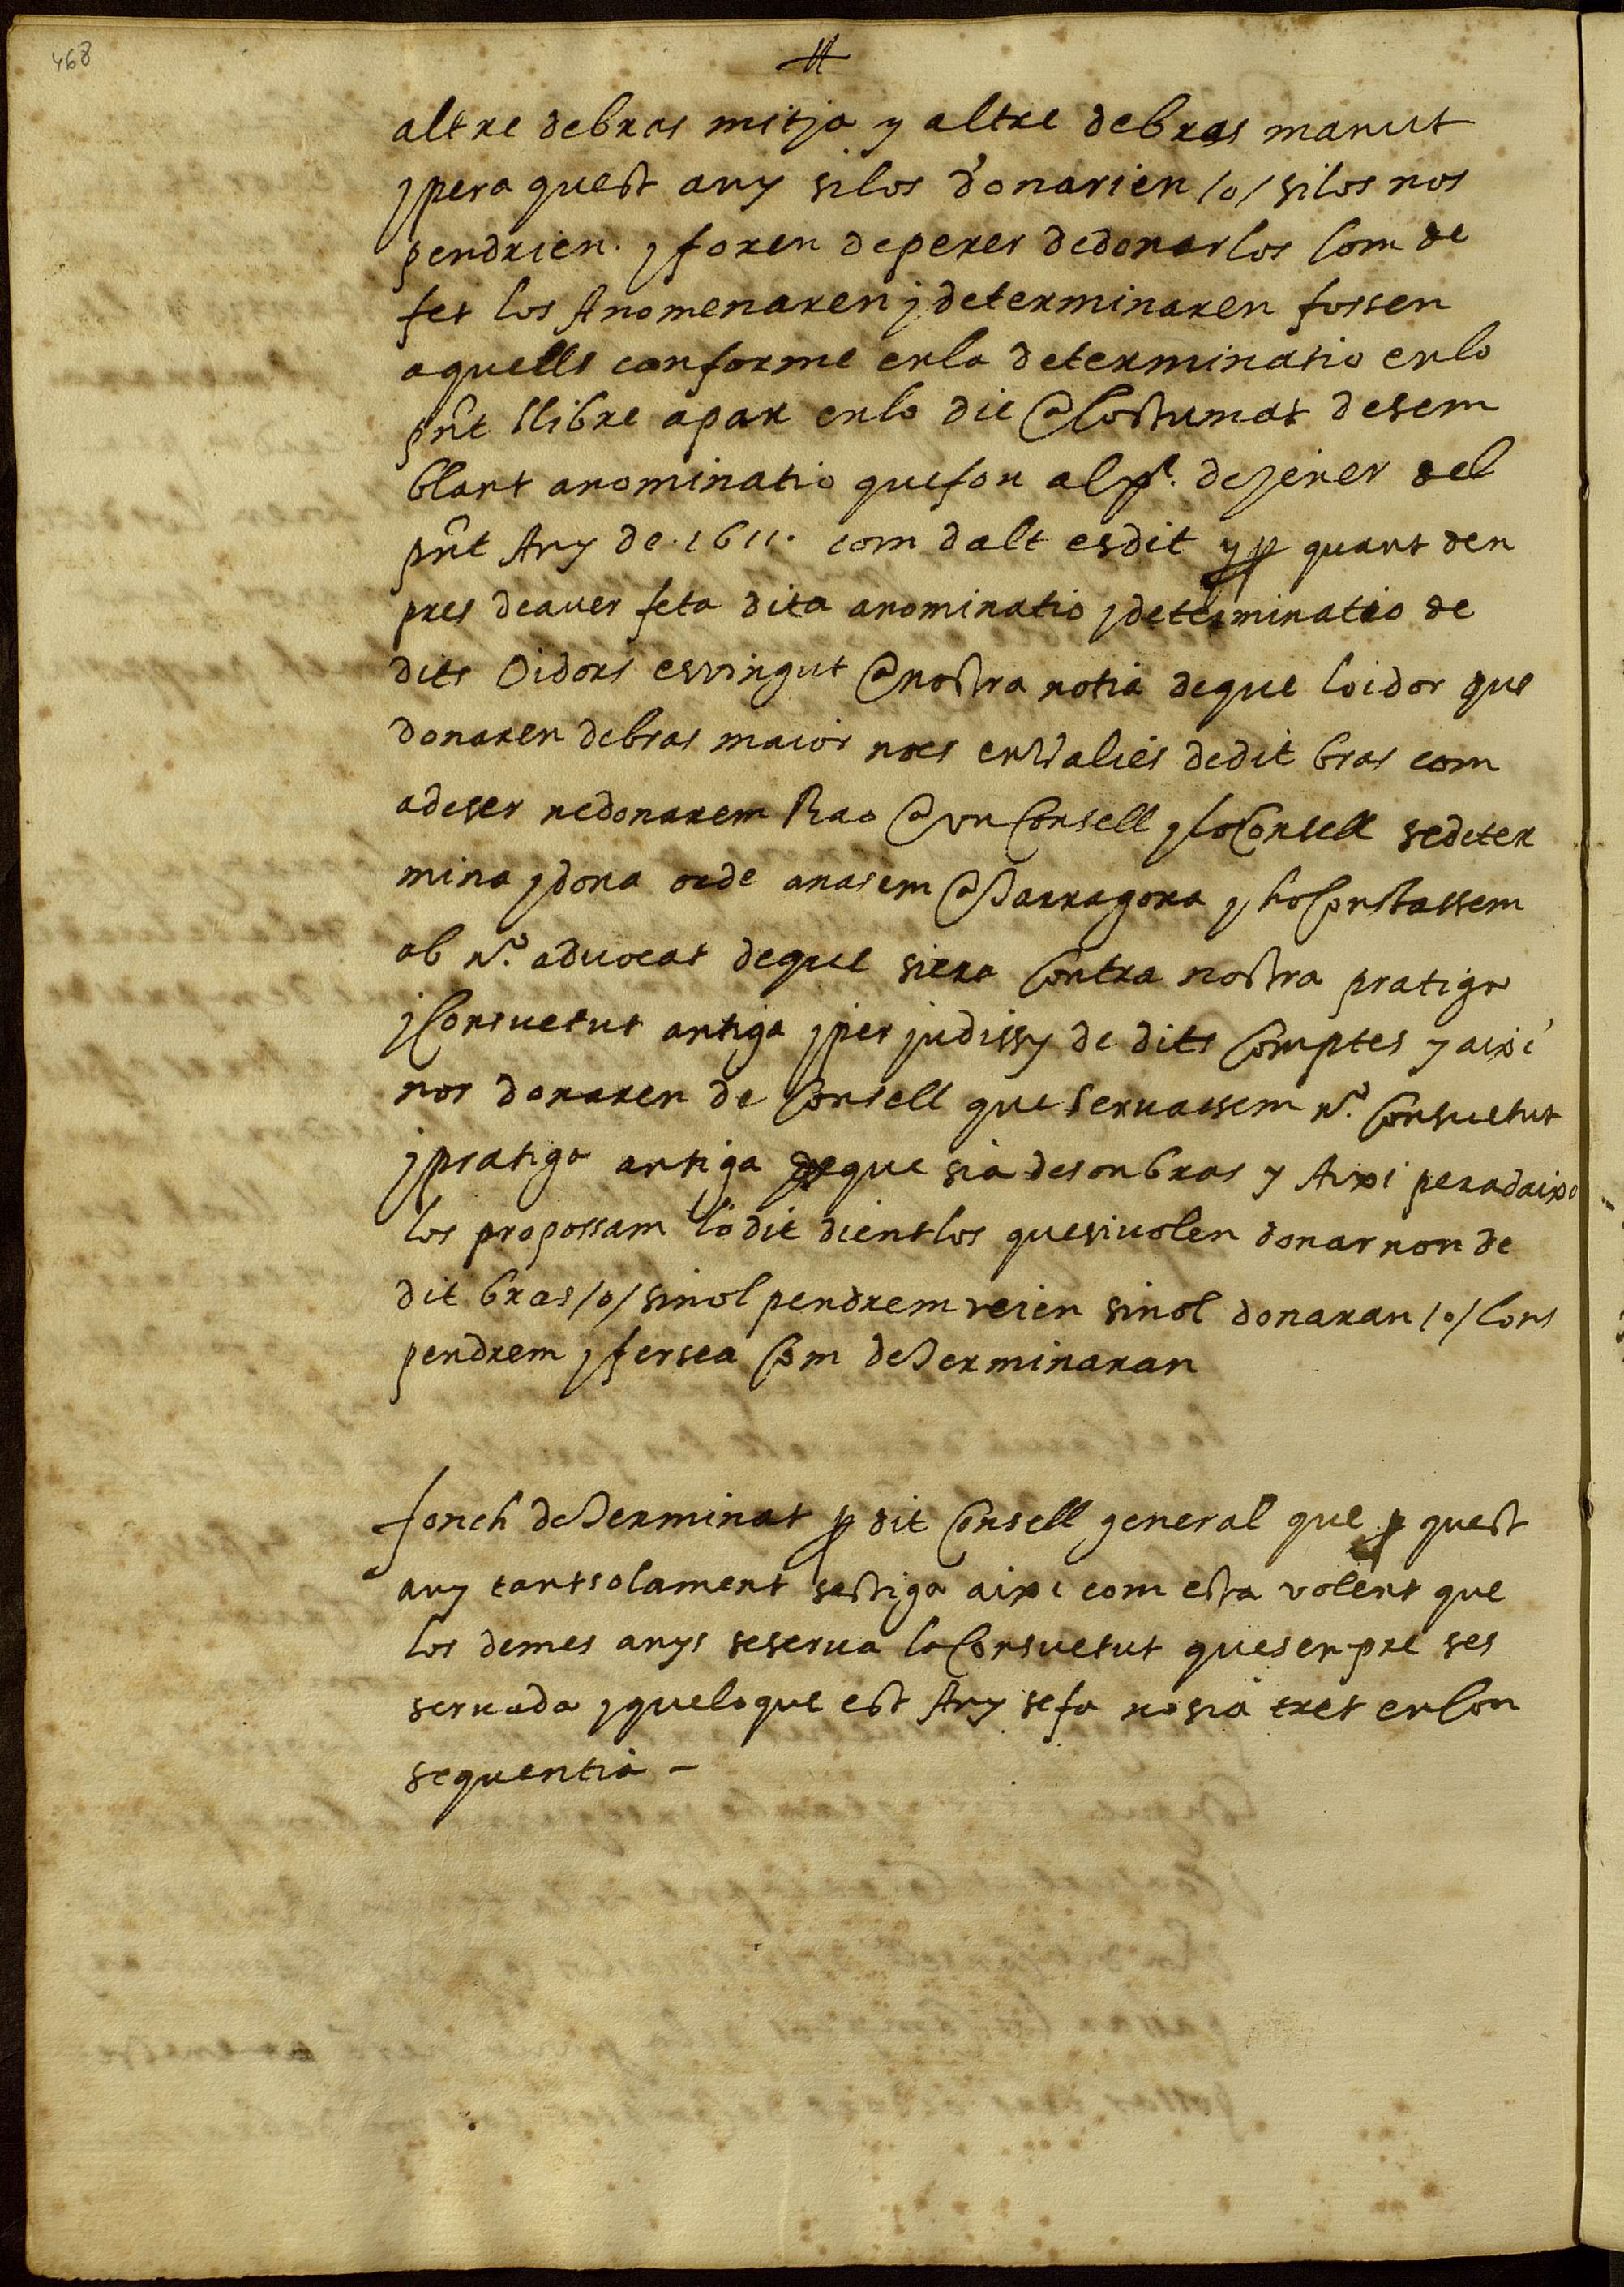 468
altre debras mitja y altre debras manut
y pera quest any silos donarien /o/ silos nos
pendrien. y foren deperer dedonarlos Com de
fet los Anomenaren y determinaren fossen
aquells conforme enla determinatio enlo
pñt llibre apar enlo die a Costumat desem
blant anominatio quefon al pr. dejener del
pñt Any de .1611. com dalt esdit y p quant den
pres deauer feta dita anominatio y determinatio de
dits Oidors esvingut a nostra notia deque loidor que
donaren debras maior noes enValies dedit bras com
adeser nedonarem Rao a vn Consell y lo Consell sedeter
mina y dona orde anasem a Tarragona y ho Consultassem
ab nr̃. aduocat deque siera Contra nostra pratiga
y Consuetut antiga y per judissy de dits Comptes y aixi
nos donaren de Consell que seruassem nr̃. Consuetut
y pratiga antiga que sia deson bras y Aixi peradaixo
los propossam lo dit dientlos quesiuolen donar non de
dit bras /o/ sinol pendrem veien sinol donaran /o/ Lons
pendrem y fersea Com deTerminaran
fonch deTerminat p dit Consell general que p quest
any tantsolament sestiga aixi com esta volent que
los demes anys seserua la Consuetut quesenpre ses
seruada y queloque est Any sefa nosia tret enCon
sequentia -